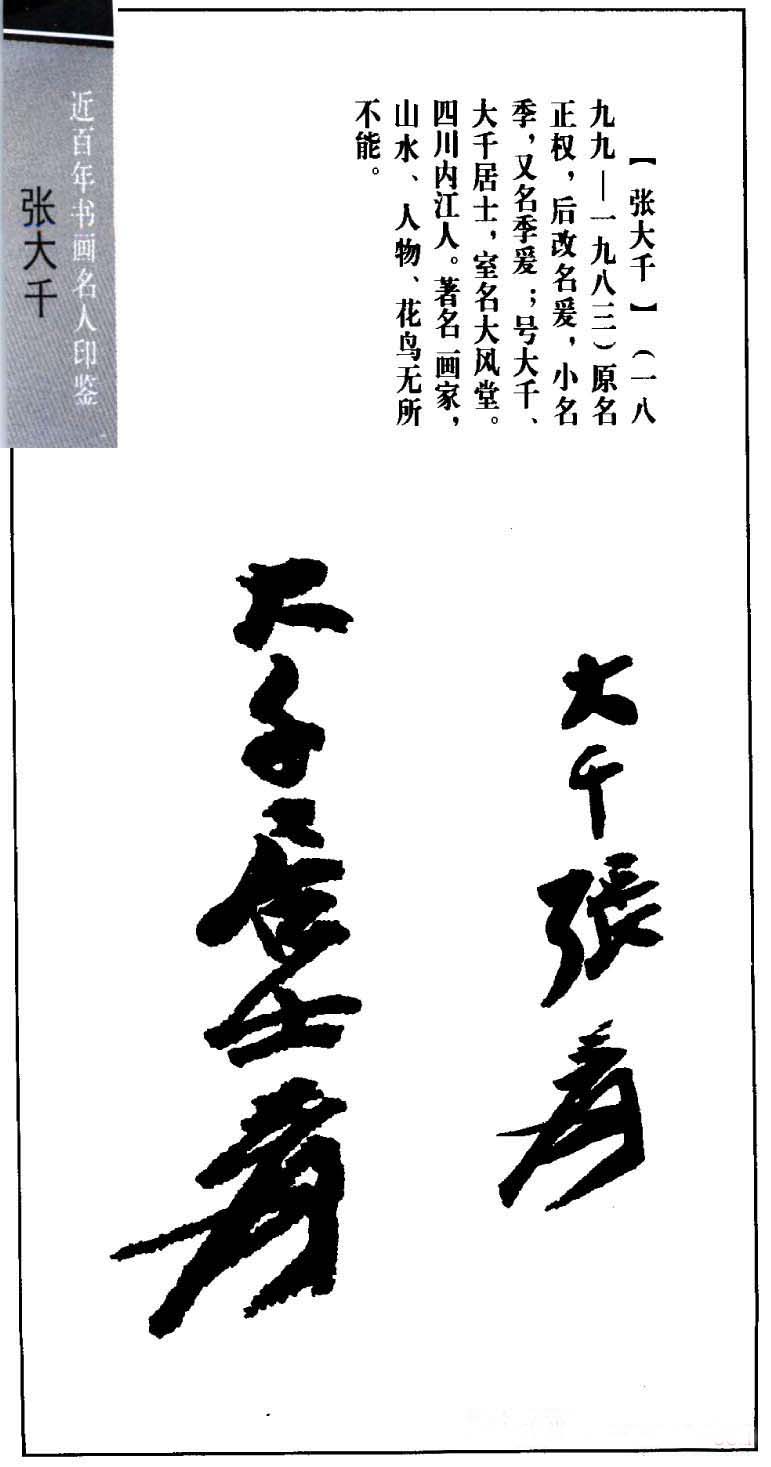 【张大千】（一八
九九—一九八三）原名
正权，后改名爰，小名
季，又名季爰；号大千、
大千居士，室名大风堂。
四川内江人。著名画家，
山水、人物、花鸟无所
不能。
近百年书画名人印鉴
张大千
大千張爰
大千居士爰